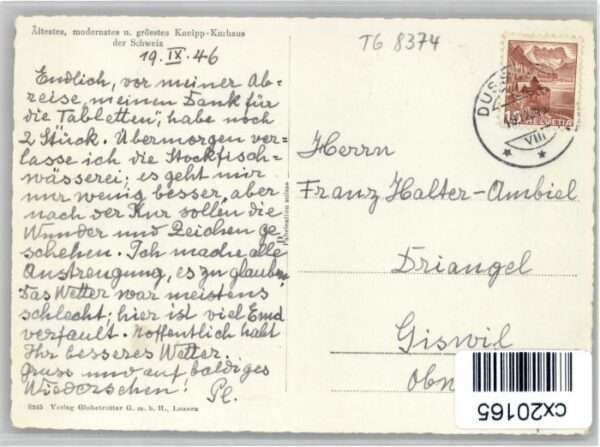 Ältestes, modernstes u. grösstes Kneipp-Kurhaus
der Schweiz
TG 8374
19. IX. 46
Endlich, vor meiner Ab=
reise, meinen Dank für
die Tabletten, habe noch
2 Stück. Übermorgen ver=
lasse ich die Stockfisch=
wässerei; es geht mir
nur wenig besser, aber
nach der Kur sollen die
Wunder und Zeichen ge
schehen. Ich mache alle
Anstrengung, es zu glauben.
Das Wetter war meistens
schlecht; hier ist viel Emd
verfault. Hoffentlich habt
Ihr besseres Wetter.
Gruss und auf baldiges
Wiedersehen! Pl.
8245 Verlag Globetrotter G. m. b. H., Luzern
DUSS
VIII
HELVETIA
Herrn
Franz Halter-Ambiel
Driangel
Giswil
Obw
cx20165